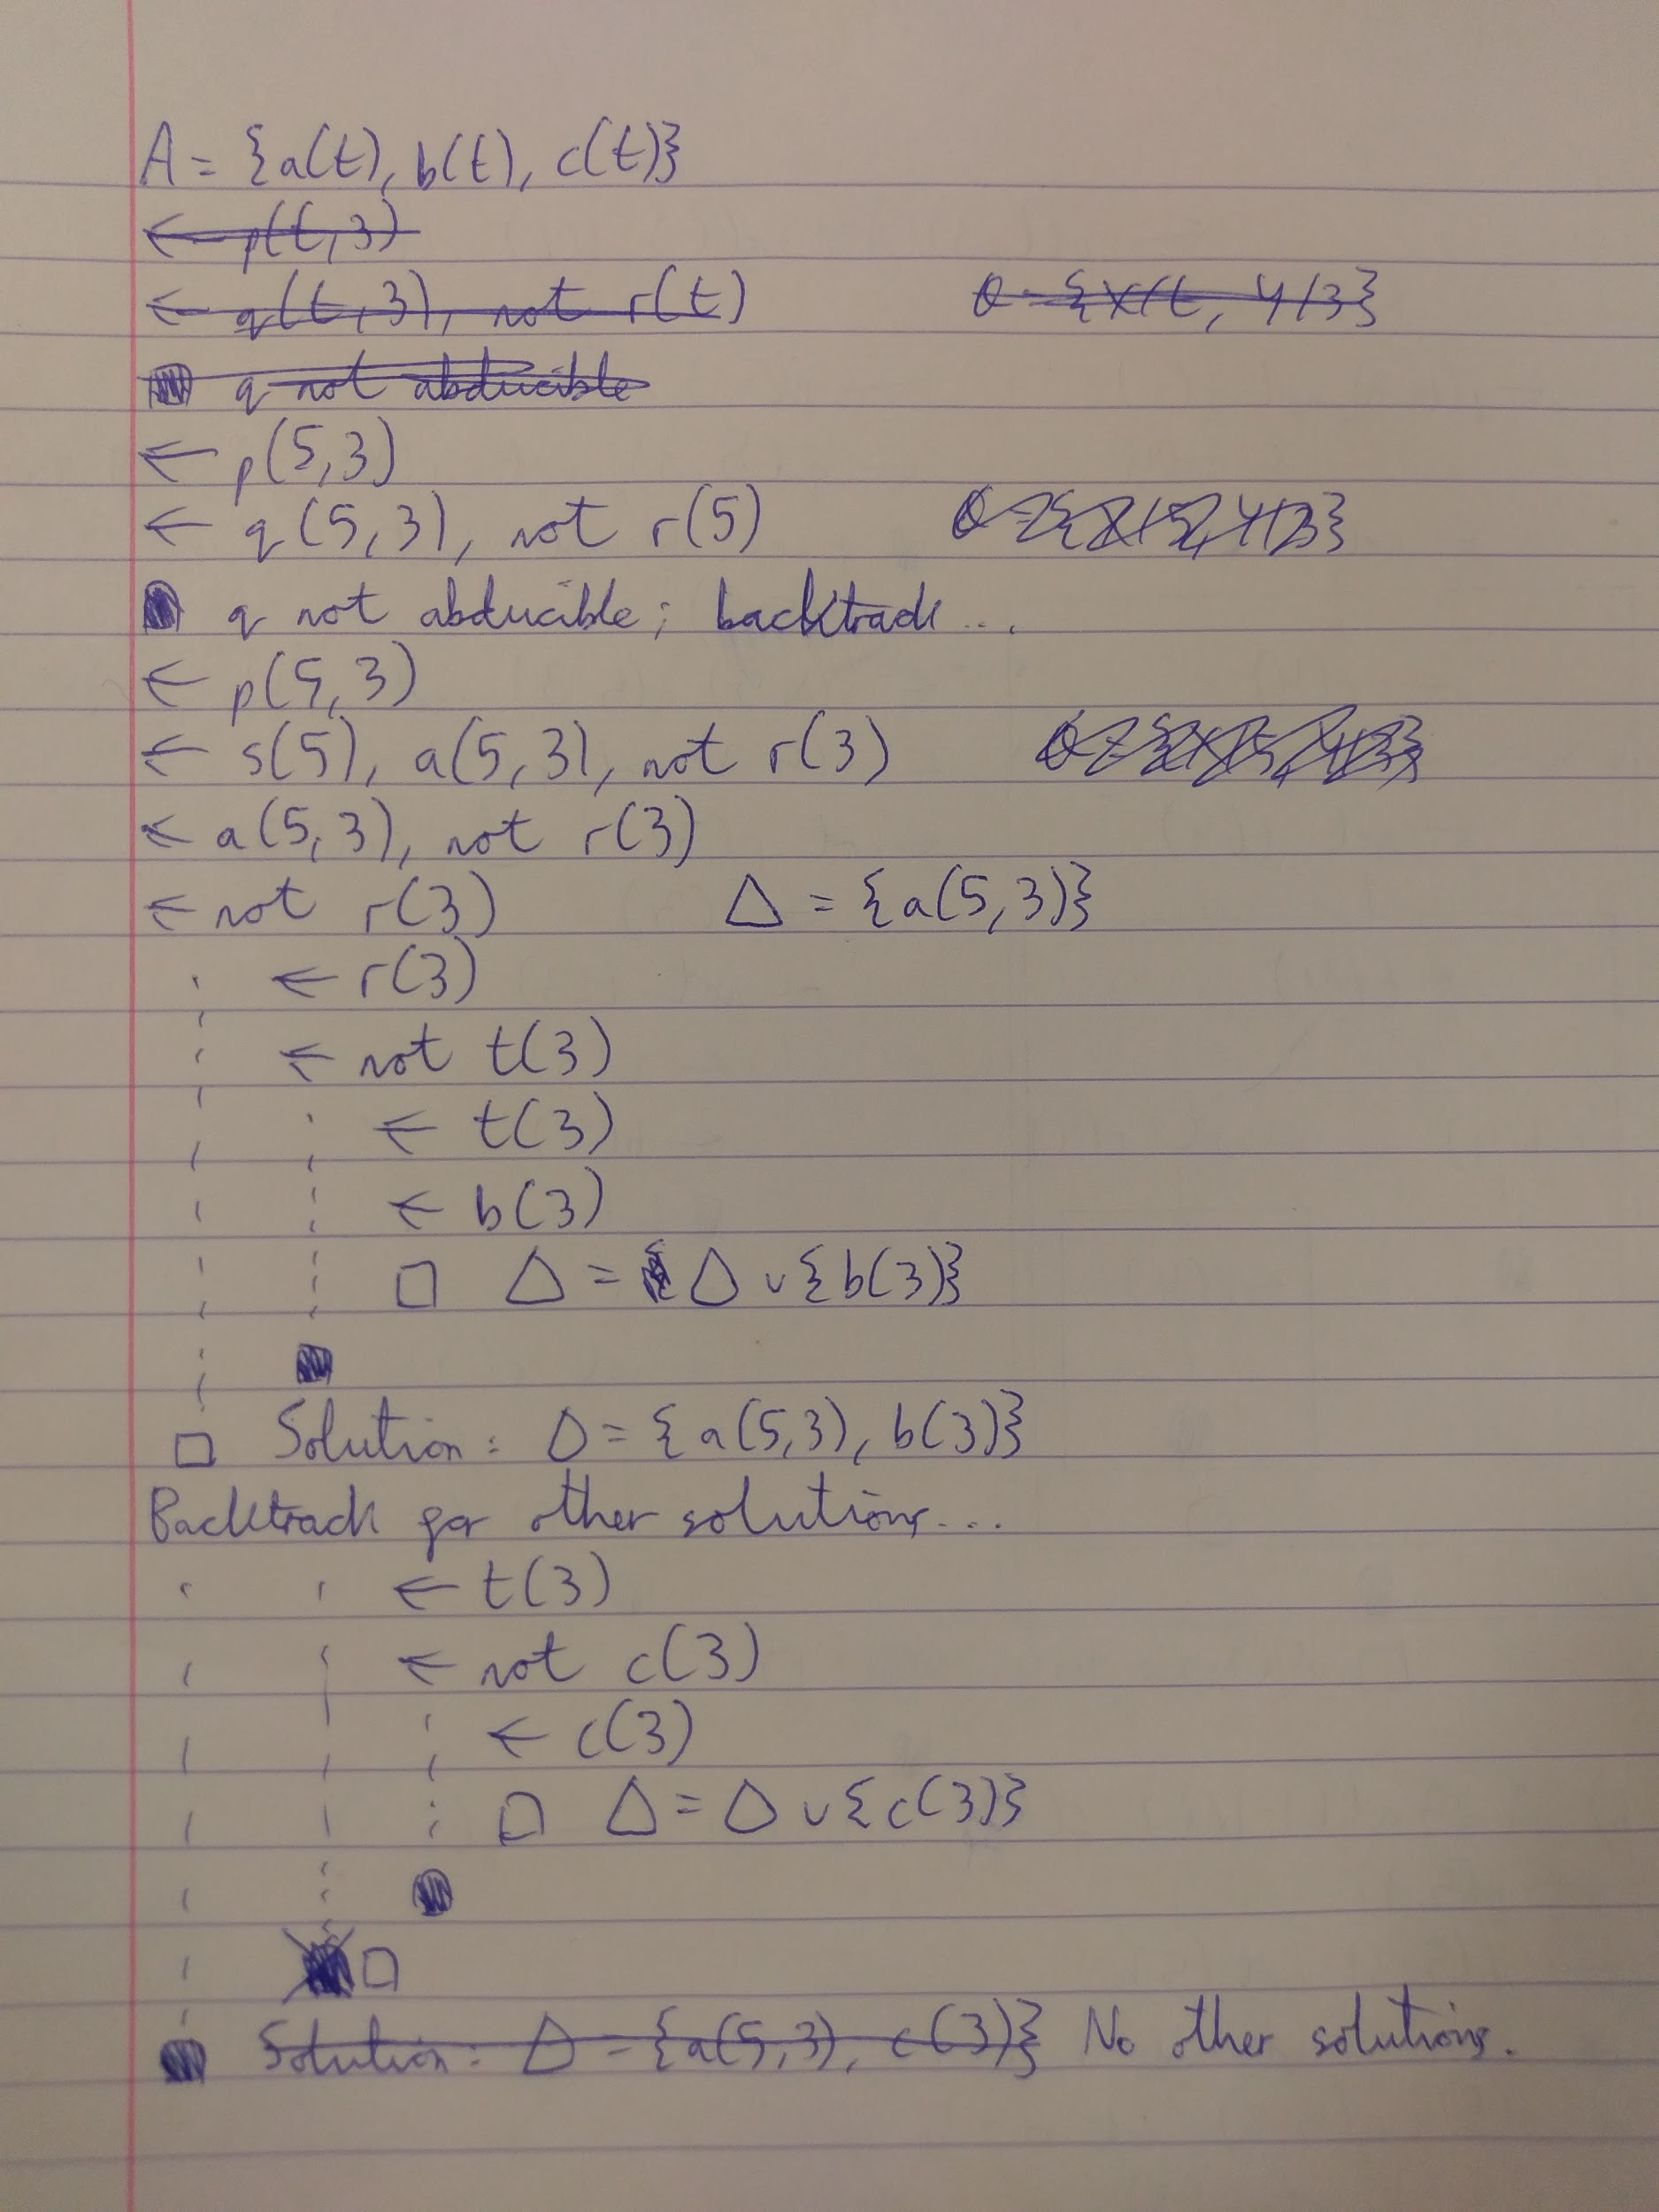 A = {a(t), b(t), c(t)}
← p(t,3)
← q(t,3), not r(t) θ = {X/t, Y/3}
■ q not abducible
← p(5,3)
← q(5,3), not r(5) θ = {X/5, Y/3}
■ q not abducible; backtrack...
← p(5,3)
← s(5), a(5,3), not r(3) θ = {X/5, Y/3}
← a(5,3), not r(3)
← not r(3) Δ = {a(5,3)}
← r(3)
← not t(3)
← t(3)
← b(3)
□ Δ = Δ ∪ {b(3)}
■
□ Solution: Δ = {a(5,3), b(3)}
Backtrack for other solutions...
← t(3)
← not c(3)
← c(3)
□ Δ = Δ ∪ {c(3)}
■
■ □
■ Solution: Δ = {a(5,3), c(3)} No other solutions.